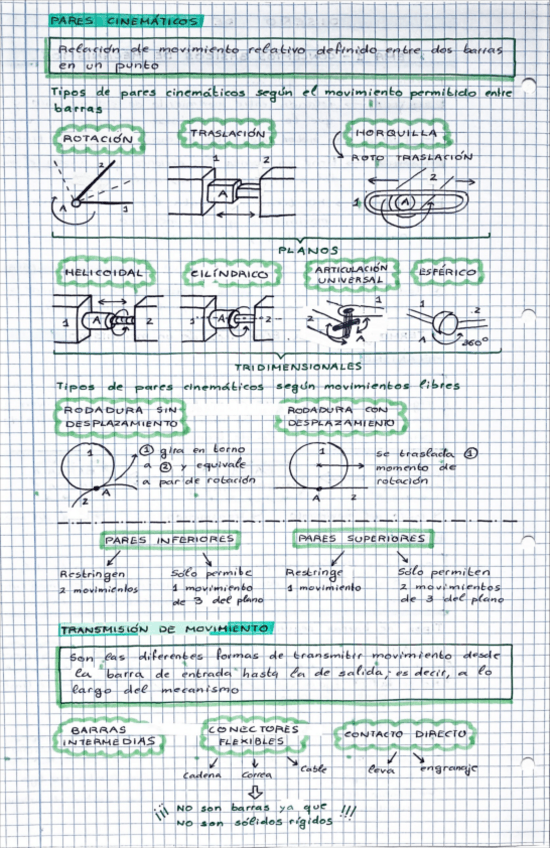 PARES CINEMÁTICOS
Relación de movimiento relativo definido entre dos barras
en un punto
Tipos de pares cinemáticos según el movimiento permitido entre
barras
ROTACIÓN
TRASLACIÓN
HORQUILLA
ROTO TRASLACIÓN
2
A
1
1
2
A
1
2
A
PLANOS
HELICOIDAL
CILÍNDRICO
ARTICULACIÓN
UNIVERSAL
ESFÉRICO
1
A
2
1
A
2
1
2
A
1
2
A
360º
TRIDIMENSIONALES
Tipos de pares cinemáticos según movimientos libres
RODADURA SIN
DESPLAZAMIENTO
RODADURA CON
DESPLAZAMIENTO
1
A
2
① gira en torno
a ② y equivale
a par de rotación
1
A
2
se traslada ①
momento de
rotación
PARES INFERIORES
PARES SUPERIORES
Restringen
2 movimientos
Sólo permite
1 movimiento
de 3 del plano
Restringe
1 movimiento
Sólo permiten
2 movimientos
de 3 del plano
TRANSMISIÓN DE MOVIMIENTO
Son las diferentes formas de transmitir movimiento desde
la barra de entrada hasta la de salida; es decir, a lo
largo del mecanismo
BARRAS
INTERMEDIAS
CONECTORES
FLEXIBLES
CONTACTO DIRECTO
Cadena
Correa
Cable
leva
engranaje
¡¡¡ NO son barras ya que !!!
NO son sólidos rígidos